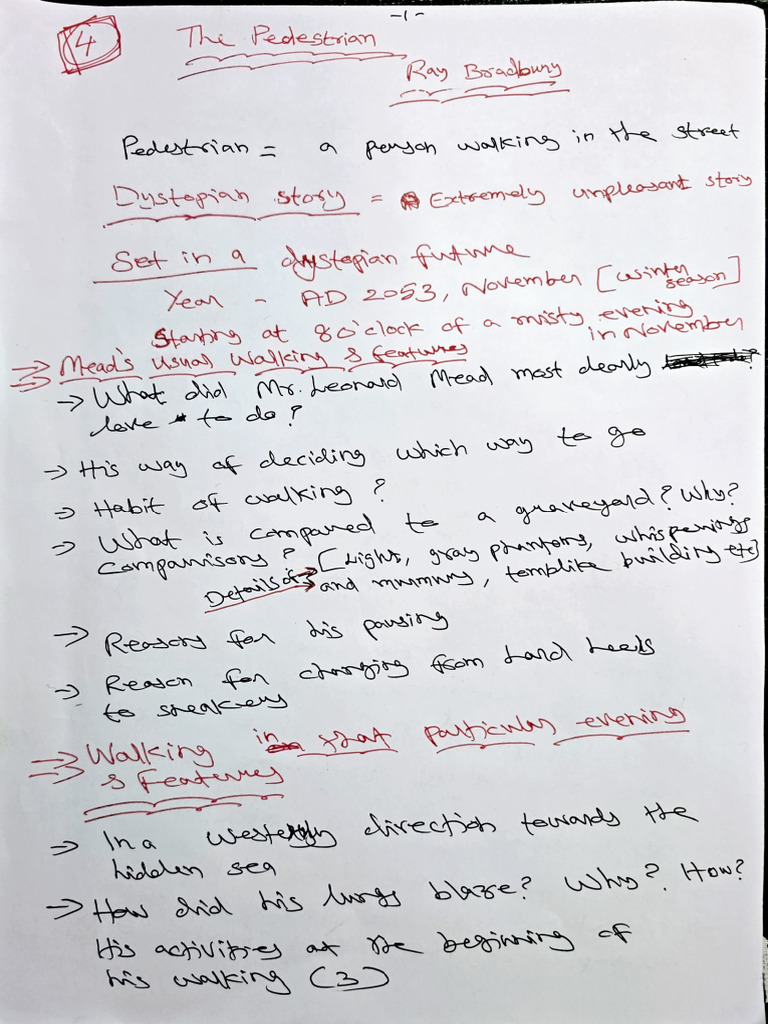 -1-
4
The Pedestrian
Ray Bradbury
Pedestrian = a person walking in the street
Dystopian story = Extremely unpleasant story
Set in a dystopian future
Year - AD 2053, November [winter season]
Starting at 8 o'clock of a misty evening in November
⇒ Mead's usual walking & features
→ What did Mr. Leonard Mead most dearly
love to do?
→ His way of deciding which way to go
→ Habit of walking?
→ What is compared to a graveyard? Why?
Comparisons? [Light, gray phantoms, whisperings
Details of → and murmurs, tomblike building etc]
→ Reasons for his pausing
→ Reason for changing from hard heels
to sneakers
⇒ Walking in that particular evening
& Features
→ In a westerly direction towards the
hidden sea
→ How did his lungs blaze? Why? How?
His activities at the beginning of
his walking (3)